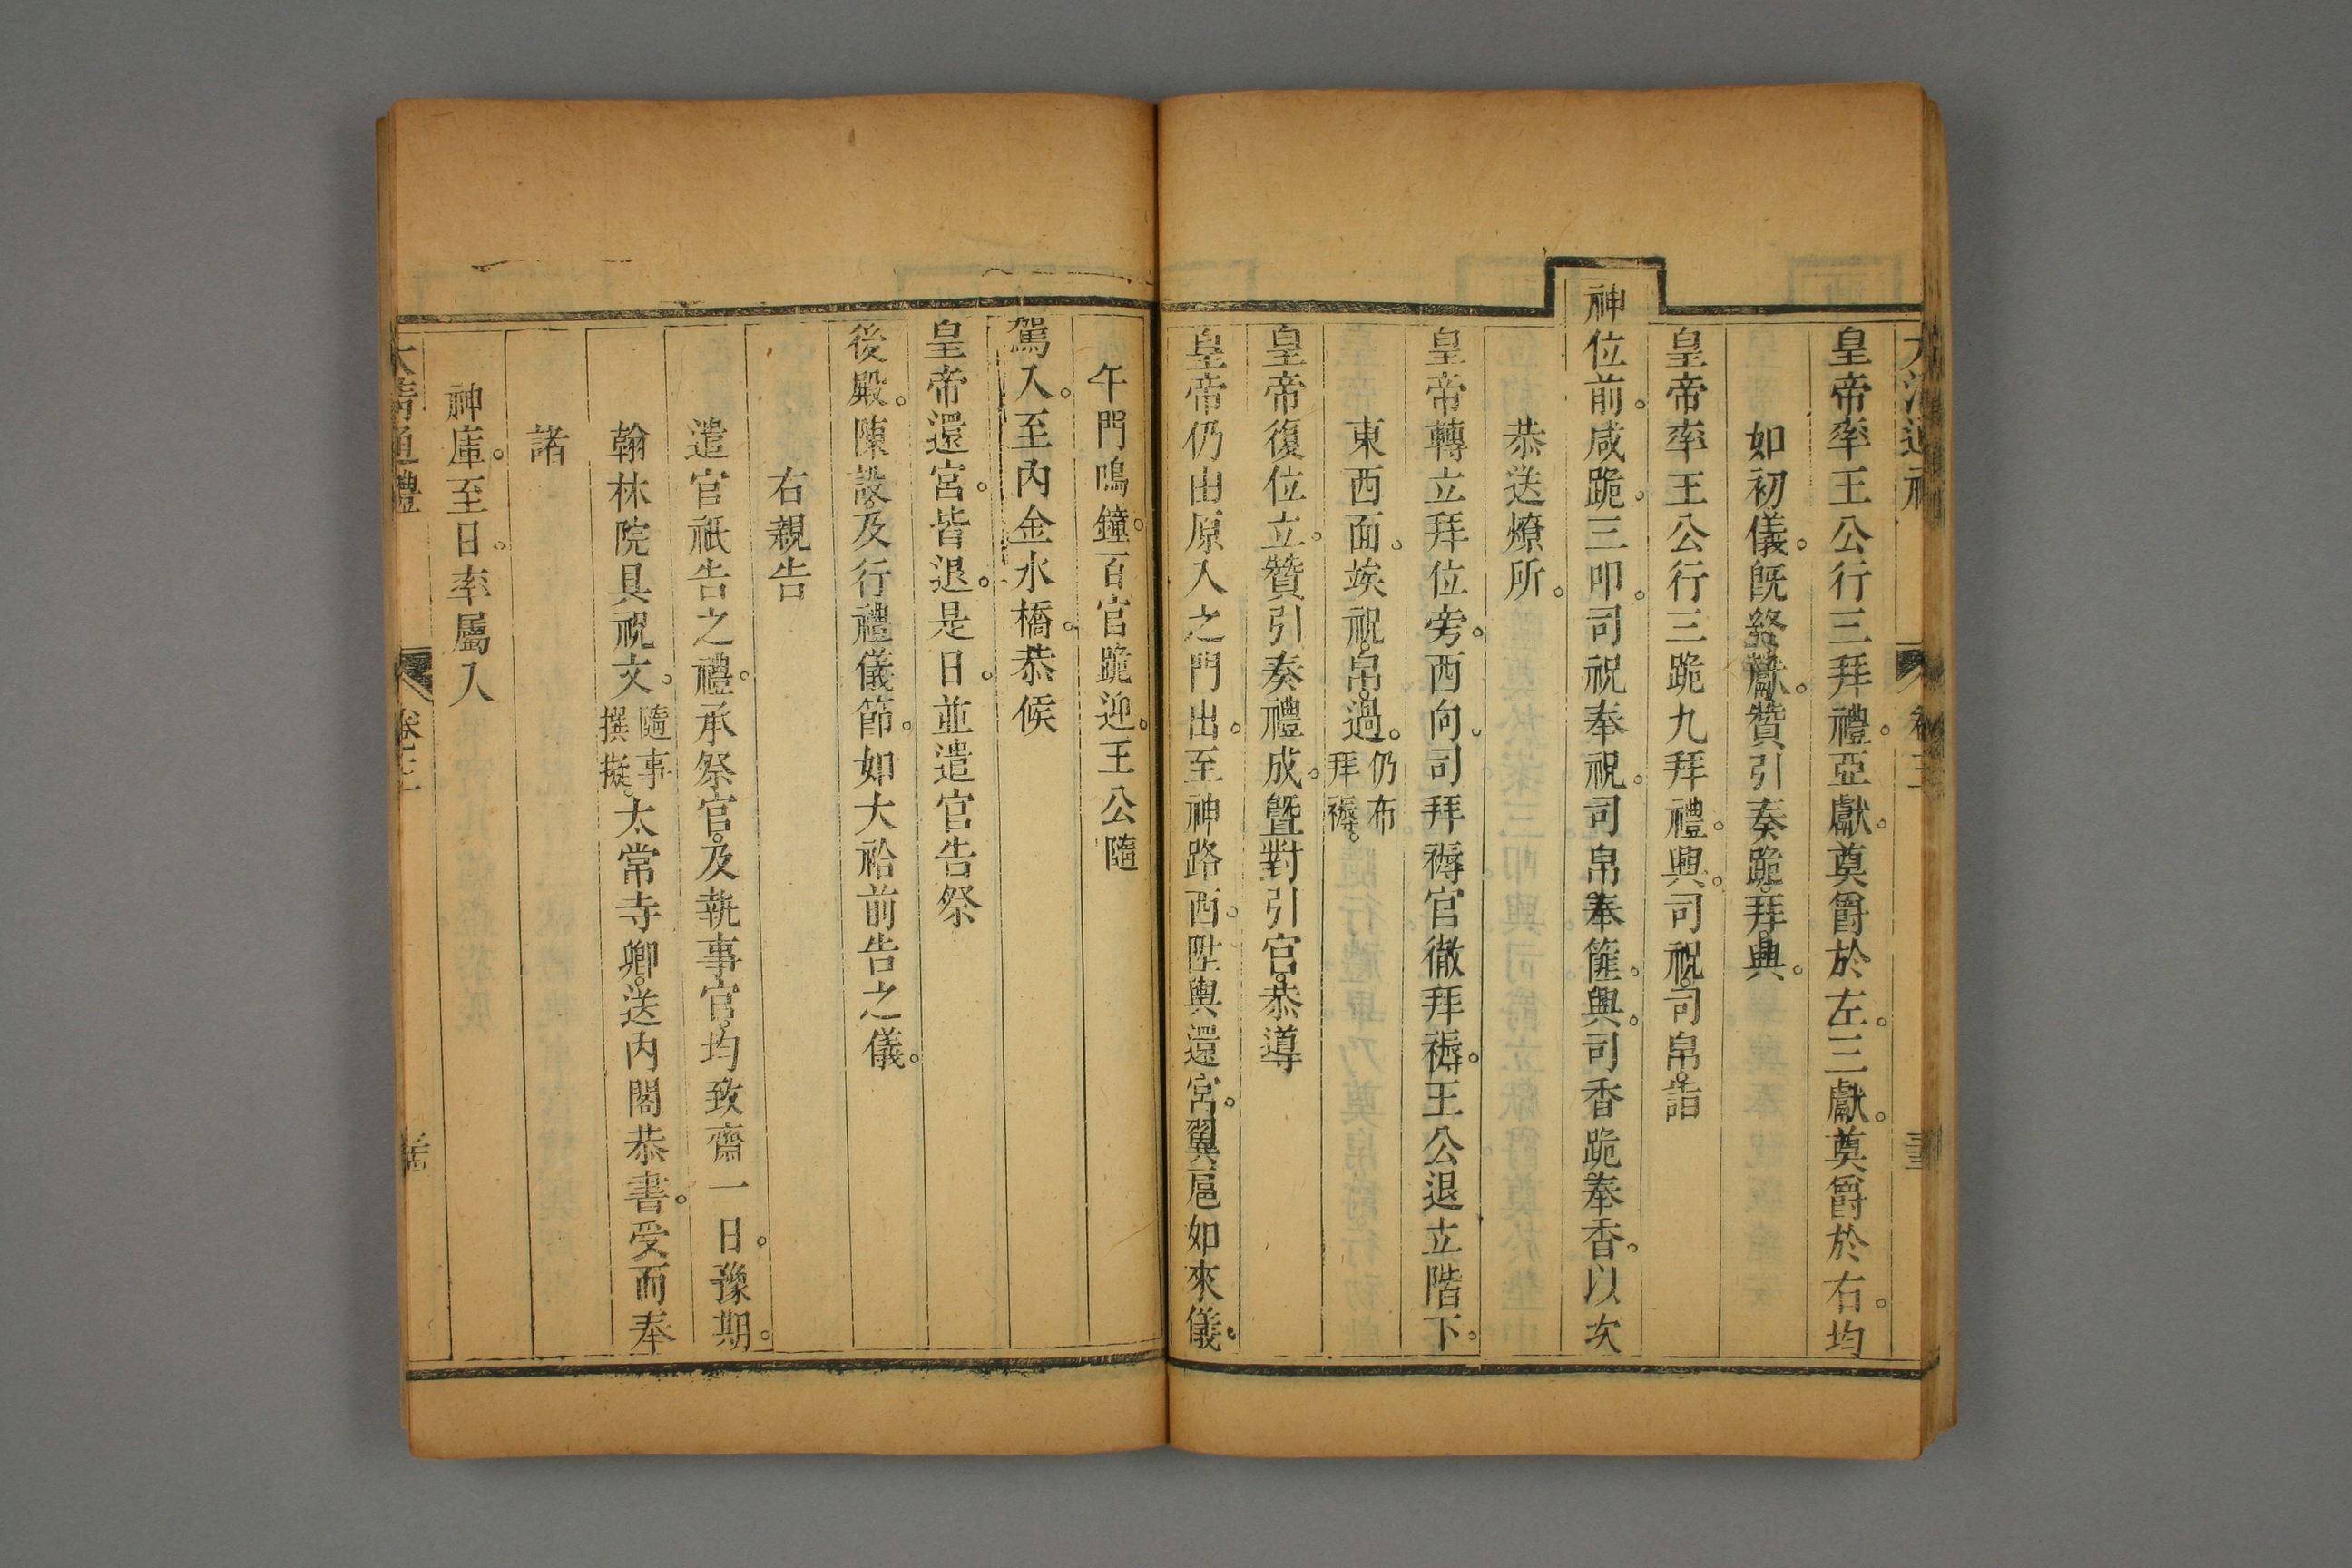 大清通禮 卷三
皇帝率王公行三拜禮。亞獻。奠爵於左。三獻。奠爵於右。均
如初儀。旣終獻。贊引奏跪。拜。興。
皇帝率王公行三跪九拜禮。興。司祝。司帛。詣
神位前。咸跪。三叩。司祝奉祝。司帛奉篚。興。司香跪奉香。以次
恭送燎所。
皇帝轉立拜位旁。西向。司拜褥官徹拜褥。王公退立階下。
東西面。埃祝。帛。過。仍布拜褥。
皇帝復位立。贊引奏禮成。曁對引官。恭導
皇帝仍由原入之門出。至神路西。陞輿還宮。翼扈如來儀。
午門鳴鐘。百官跪迎。王公隨
駕入。至内金水橋。恭候
皇帝還宮。皆退。是日。並遣官告祭
後殿。陳設。及行禮儀節。如大祫前告之儀。
右親告
遣官祇告之禮。承祭官。及執事官。均致齋一日。豫期。
翰林院具祝文。隨事撰擬。太常寺卿。送内閣恭書。受而奉
諸
神庫。至日。率屬入
大清通禮 卷三